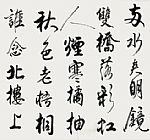 兩水夾明鏡
雙橋落彩虹
人煙寒橘柚
秋色老梧桐
誰念北樓上